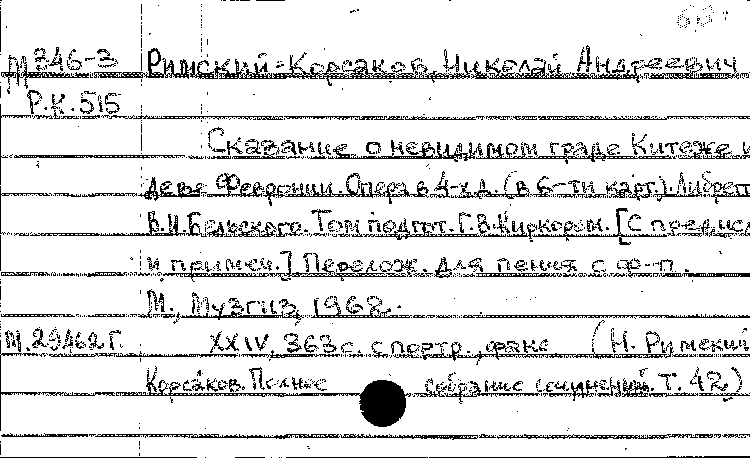 М 346-3 Римский-Корсаков, Николай Андреевич
Р.К. 515
Сказание о невидимом граде Китеже и
деве Февронии. Опера в 4-х д. (в 6-ти карт.). Либрет
В.И. Бельского. Том подгот. Г.В. Киркором. [С предисл
и примеч.] Перелож. для пения с ф-п.
М., Музгиз, 1962.
М. 29462 Г. XXIV, 363 с. с портр., факс. (Н. Римский
Корсаков. Полное собрание сочинений. Т. 42)